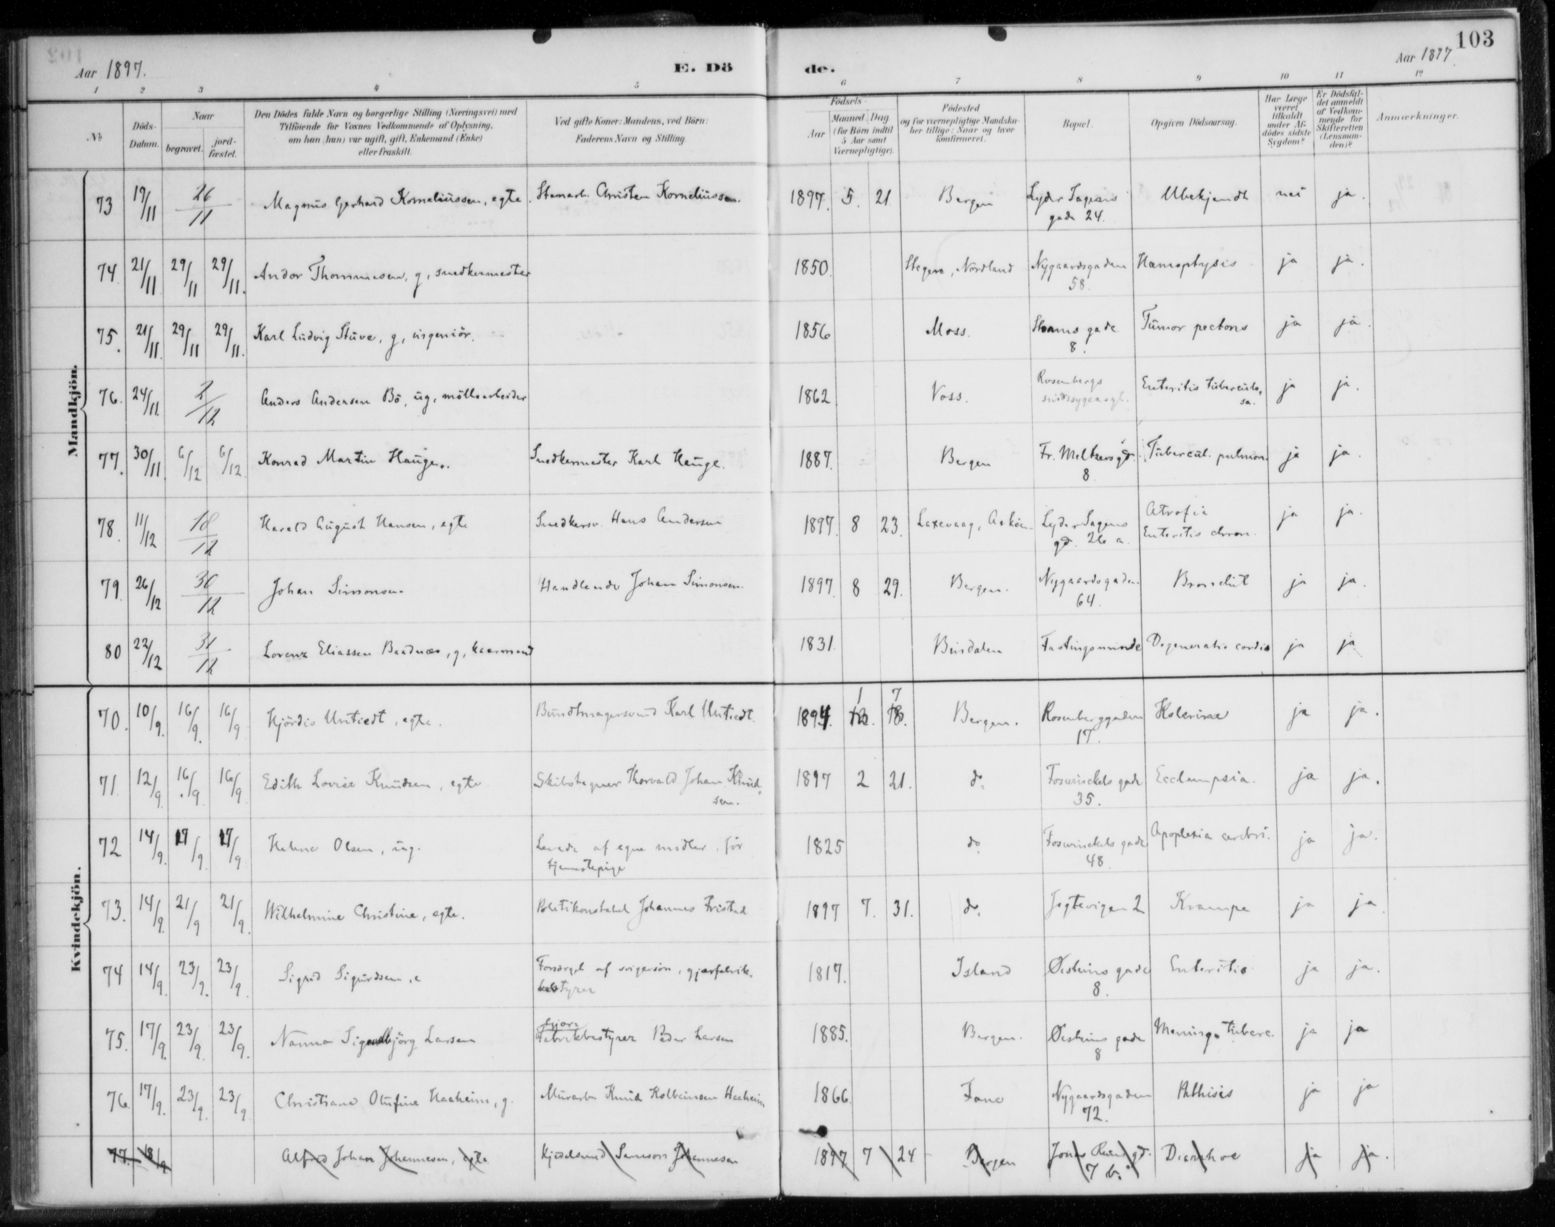 103
Aar 1897.
E. Dö
de.
Aar 1897
1 2 3 4 5 6 7 8 9 10 11 12
No
Döds-
Datum.
Naar
begravet.
jord-
fæstet.
Den Dödes fulde Navn og borgerlige Stilling (Næringsvei) med
Tilföiende for Voxnes Vedkommende af Oplysning,
om han (hun) var ugift, gift, Enkemand (Enke)
eller fraskilt.
Ved gifte Koner: Mandens, ved Börn:
Faderens Navn og Stilling
Födsels-
Aar
Maaned Dag
(for Börn indtil
5 Aar samt
Værnepligtige).
Födested
og for værnepligtige Mandska-
ber tillige: Naar og hvor
konfirmeret.
Bopæl.
Opgiven Dödsaarsag.
Har Læge
været
tilkaldt
under Af-
dödes sidste
Sygdom?
Er Dödsfal-
det anmeldt
af Vedkom-
mende for
Skifteretten
(Lensman-
den)?
Anmærkninger.
Mandkjön.
73 19/11 26/11 Magnus Gerhard Korneliussen, egte. Stenarb. Christen Korneliussen. 1897. 5. 21 Bergen Lyder Sagens gade 24. Ubekjendt nei ja.
74 21/11 29/11 29/11. Andor Thommesen, g, snedkermester 1850. Stegen, Nordland Nygaardsgaden 58. Hæmoptysis ja ja.
75. 21/11 29/11 29/11. Karl Ludvig Stuve, g, ingeniör. 1856 Moss. gade 8. Tumor pectoris ja ja.
76. 24/11 2/12 Anders Andersen Bö, ug, möllearbeider 1862 Voss. Rosenbergs Enteritis tuberculo-
sa. ja ja.
77. 30/11. 6/12 6/12. Konrad Martin Hauge. Snedkermester Karl Hauge. 1887. Bergen Fr. Meltzersgd. 8 Tubercul. pulmon. ja ja.
78. 11/12 18/12 Harald August Hansen, egte Snedkersv. Hans Andersen 1897 8 23. Laxevaag, Asköen Lyder Sagens gd. 26 a. Atrofia
Enteritis chron. ja ja.
79. 26/12 30/12 Johan Simonsen. Handlende Johan Simonsen. 1897. 8 29. Bergen. Nygaardsgaden 64. Bronchit ja ja.
80 22/12 31/12 Lorenz Eliassen Baadnæs, g, 1831. Birsdalen Fastingsminde Degeneratio cordis ja ja
Kvindekjön.
70. 10/9. 16/9. 16/9 Hjördis Untiedt, egte. Bundtmagersvend Karl Untiedt. 1894. 1 7 Bergen. Rosenberggaden 17. Kolerine ja ja.
71. 12/9. 16/9 16/9. Edith Lovise Knudsen, egte Skibstegner Thorvald Johan Knud-
sen. 1897 2 21. do. Foswinckels gade 35. Ecclampsia. ja ja.
72 14/9. 17/9. 17/9 Helene Olsen, ug. Levede af egne midler, för
tjenestepige 1825 do. Foswinckels gade 48. Apoplexia cerebri. ja ja.
73. 14/9. 21/9 21/9. Wilhelmine Christine, egte. Politikonstabel Johannes Fristad 1897 7. 31. do. Jegtevigen 2 Krampe ja ja.
74 14/9. 23/9. 23/9. Sigrid Sigurdsen, e Forsörget af svigersön, gjærfabrik-
bestyrer 1817. Island Öisteins gade 8. Enteritis ja ja.
75. 17/9. 23/9. 23/9. Nanna Larsen gjær
fabrikbestyrer Peder Larsen 1885. Bergen. Öisteins gade 8 Mening. tuberc. ja ja
76. 17/9. 23/9. 23/9 Christiane Olufine Haaheim, g. Murarb. Knud Kolbeinsen Haaheim 1866. Fane Nygaardsgaden 72. Phthisis ja ja
77. 18/9 Alfred Johan Johannesen, egte Kjedelsmed Samson Johannesen 1897 7 24 Bergen Jonas gd. 7 b. Diarrhoe ja ja.